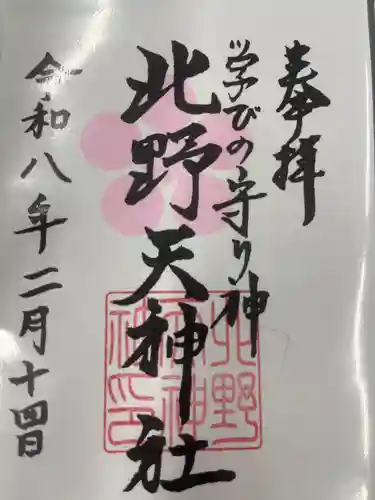 奉拝
学びの守り神
北野天神社
令和八年二月十四日
北野
天神
社印